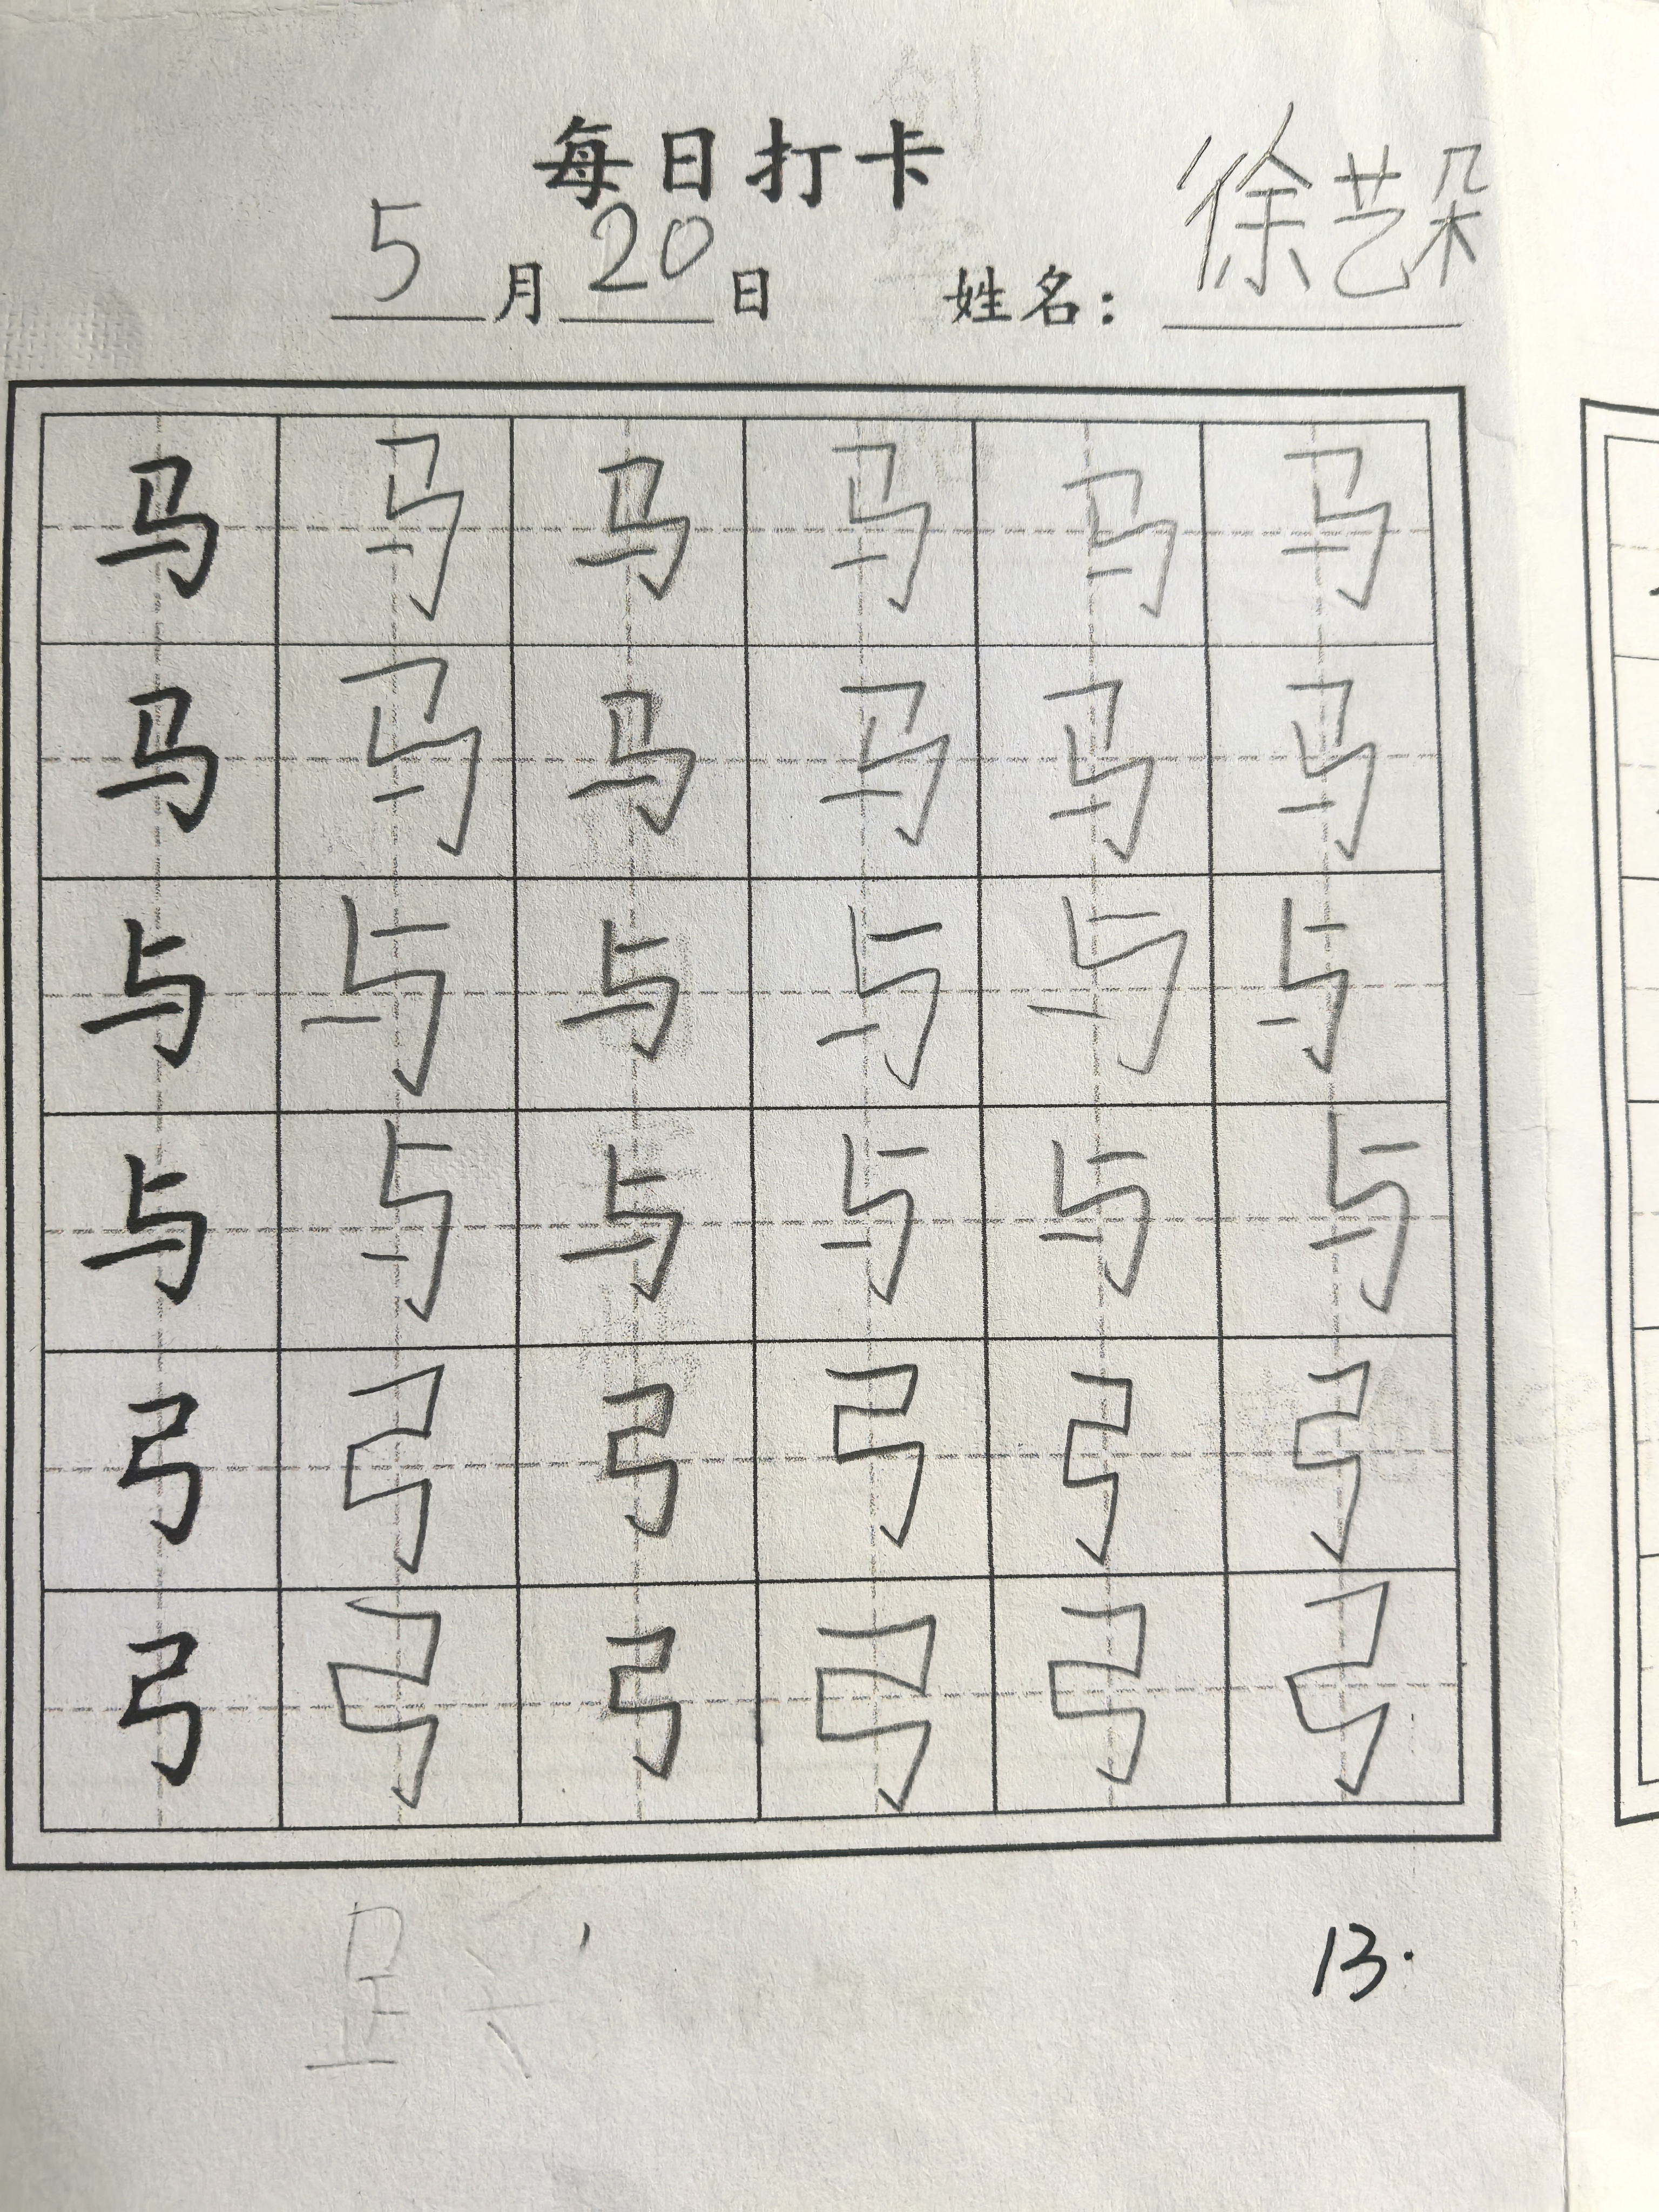 每日打卡
5月20日 姓名：徐艺朵
马马马马马马
马马马马马马
与与与与与与
与与与与与与
弓弓弓弓弓弓
弓弓弓弓弓弓
13.